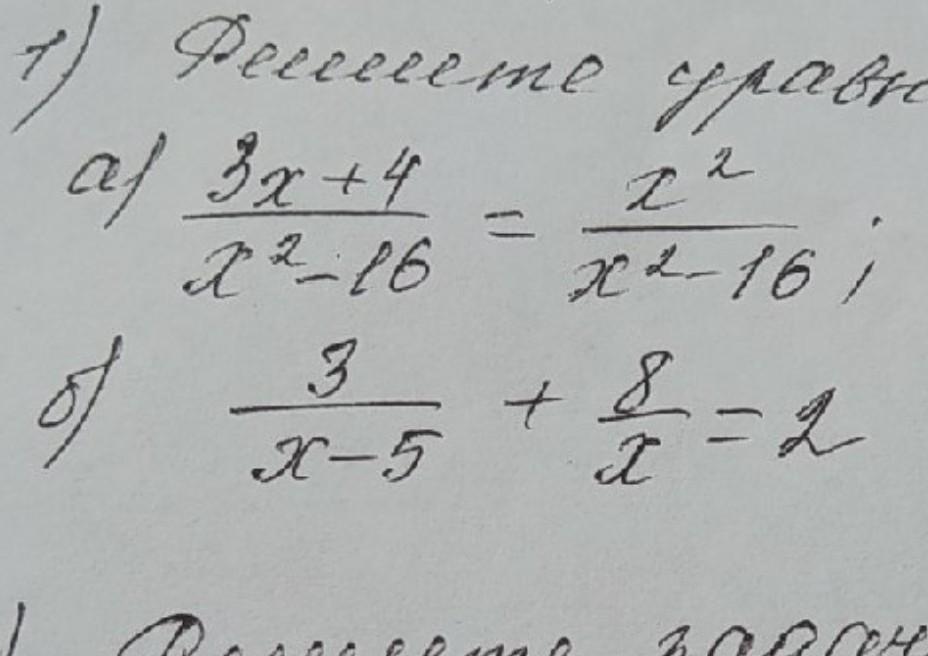 1) Решите уравн
а) \frac{3x+4}{x^2-16} = \frac{x^2}{x^2-16};
б) \frac{3}{x-5} + \frac{8}{x} = 2
) Решите задач